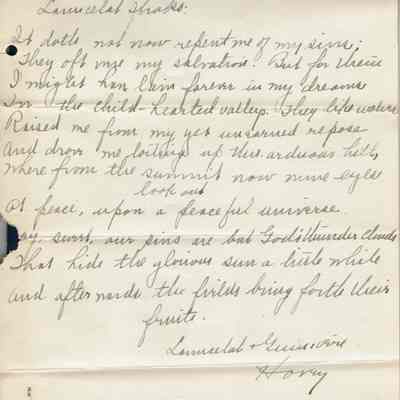 Launcelot speaks:
It doth not now repent me of my sins;
They oft urge my salvation. But for them
I might han lain forever in my dreams
In the child-hearted valleys. They like wolves
Raised me from my yet unscarred repose
And drove me toiling up this arduous hill,
Where from the summit now mine eyes
look out
At peace, upon a peaceful universe.
say sweet, our sins are but God's thunder clouds
That hide the glorious sun a little while
And afterwards the fields bring forth their
fruits.
Launcelot + Guinevere
Hovey